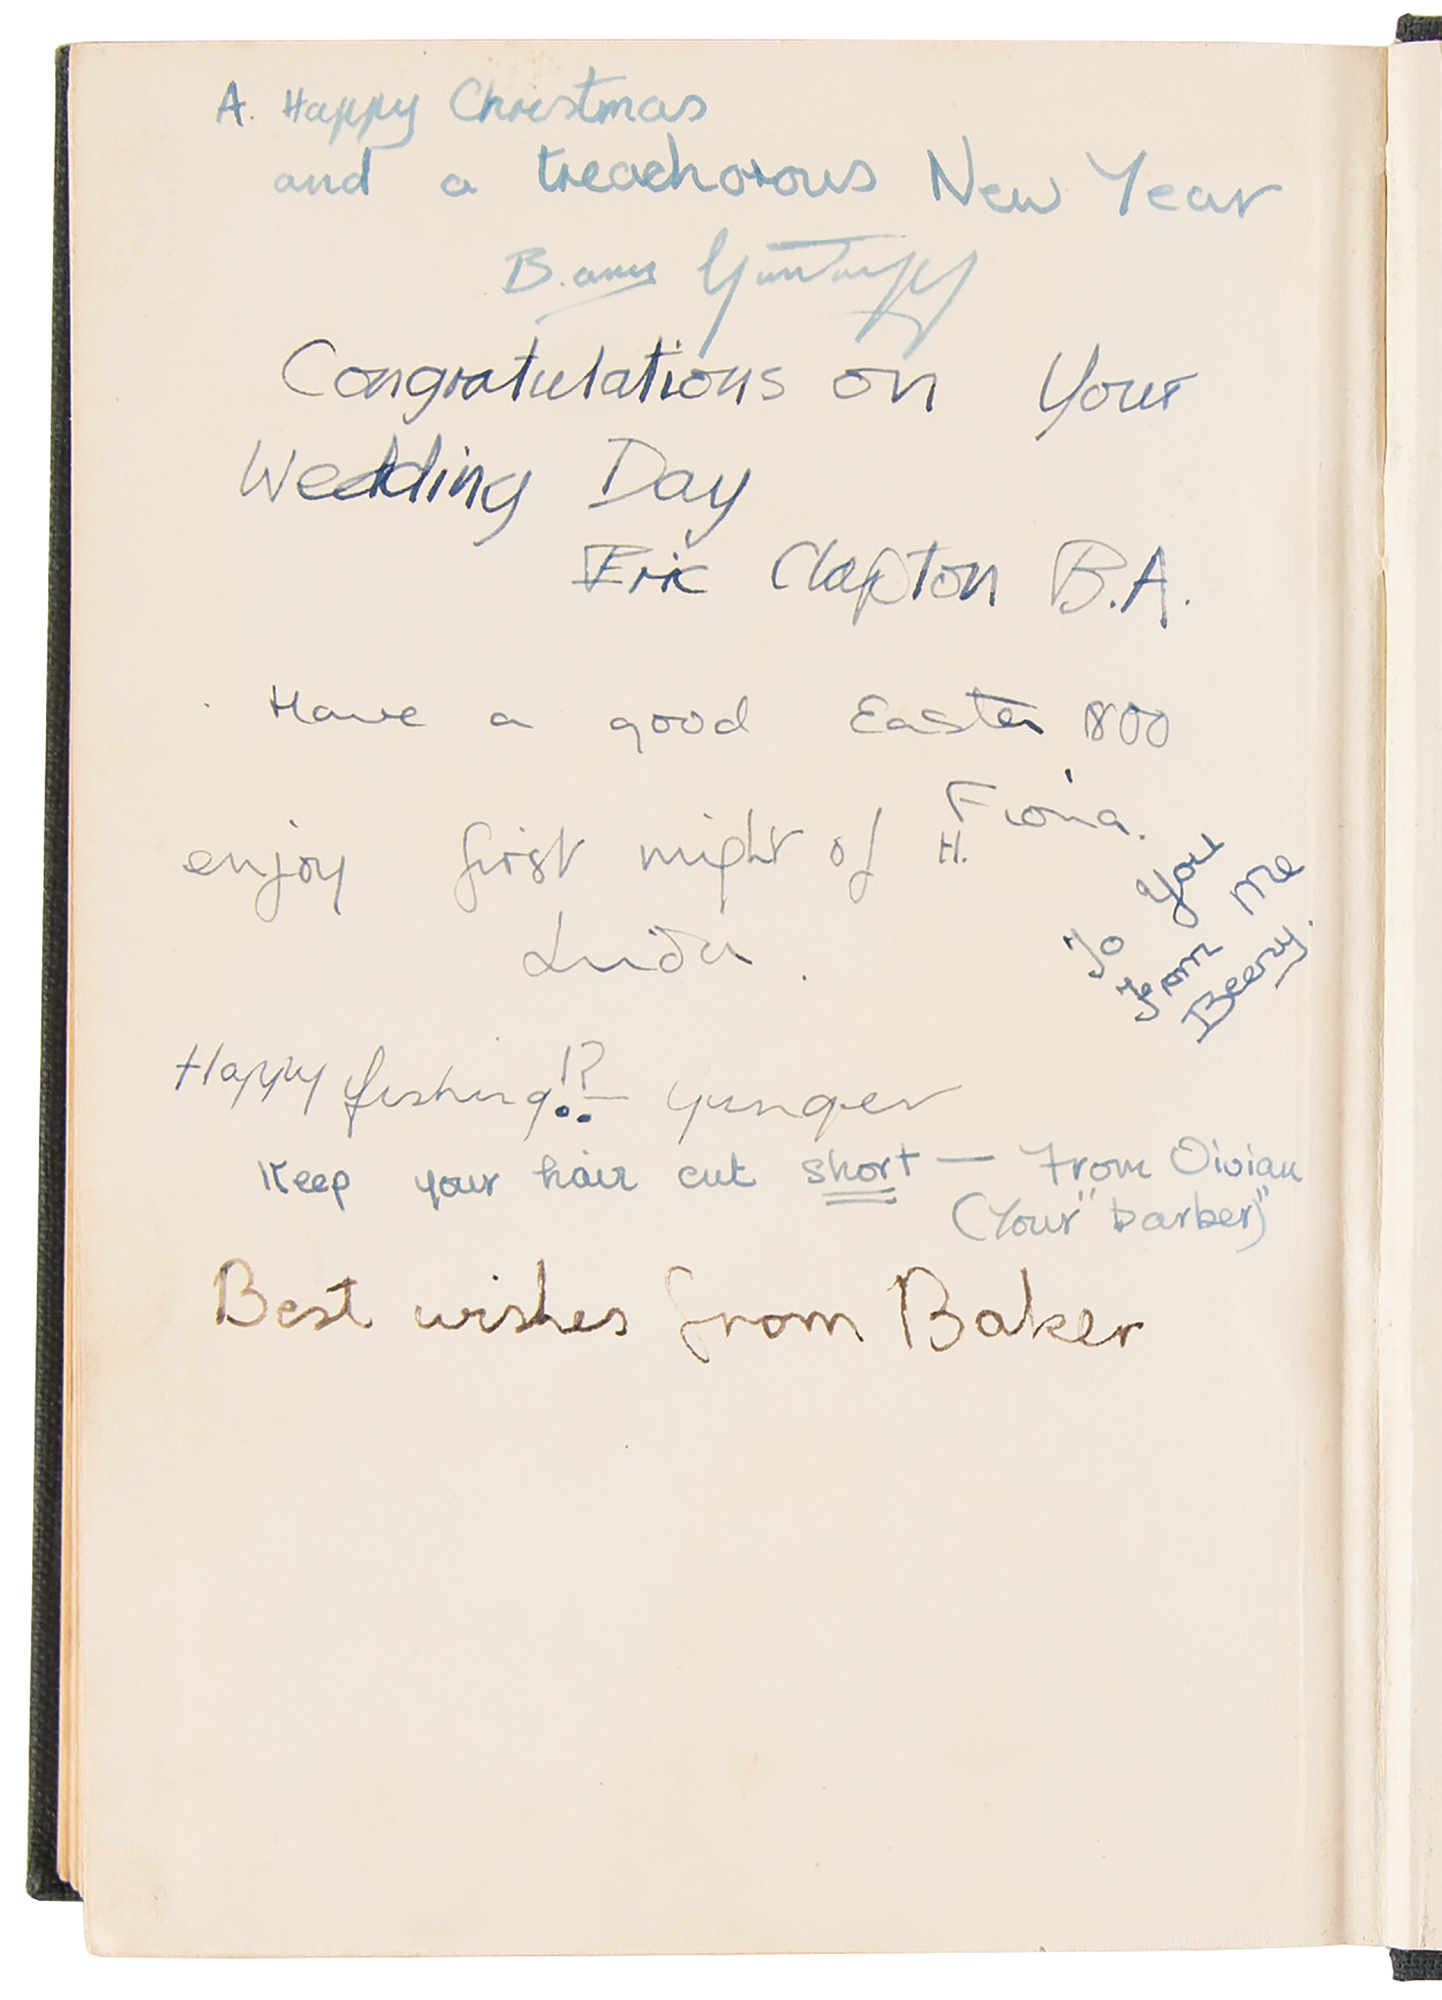 A. Happy Christmas
and a treachorous New Year
Congratulations on Your
Wedding Day
Eric Clapton B.A.
Have a good Easter 1800
Fiona.
enjoy first night of H.
Linda.
To You
From Me
Beery.
Happy fishing!? — Gunger
Keep your hair cut short — From Vivian
(Your "barber")
Best wishes from Baker